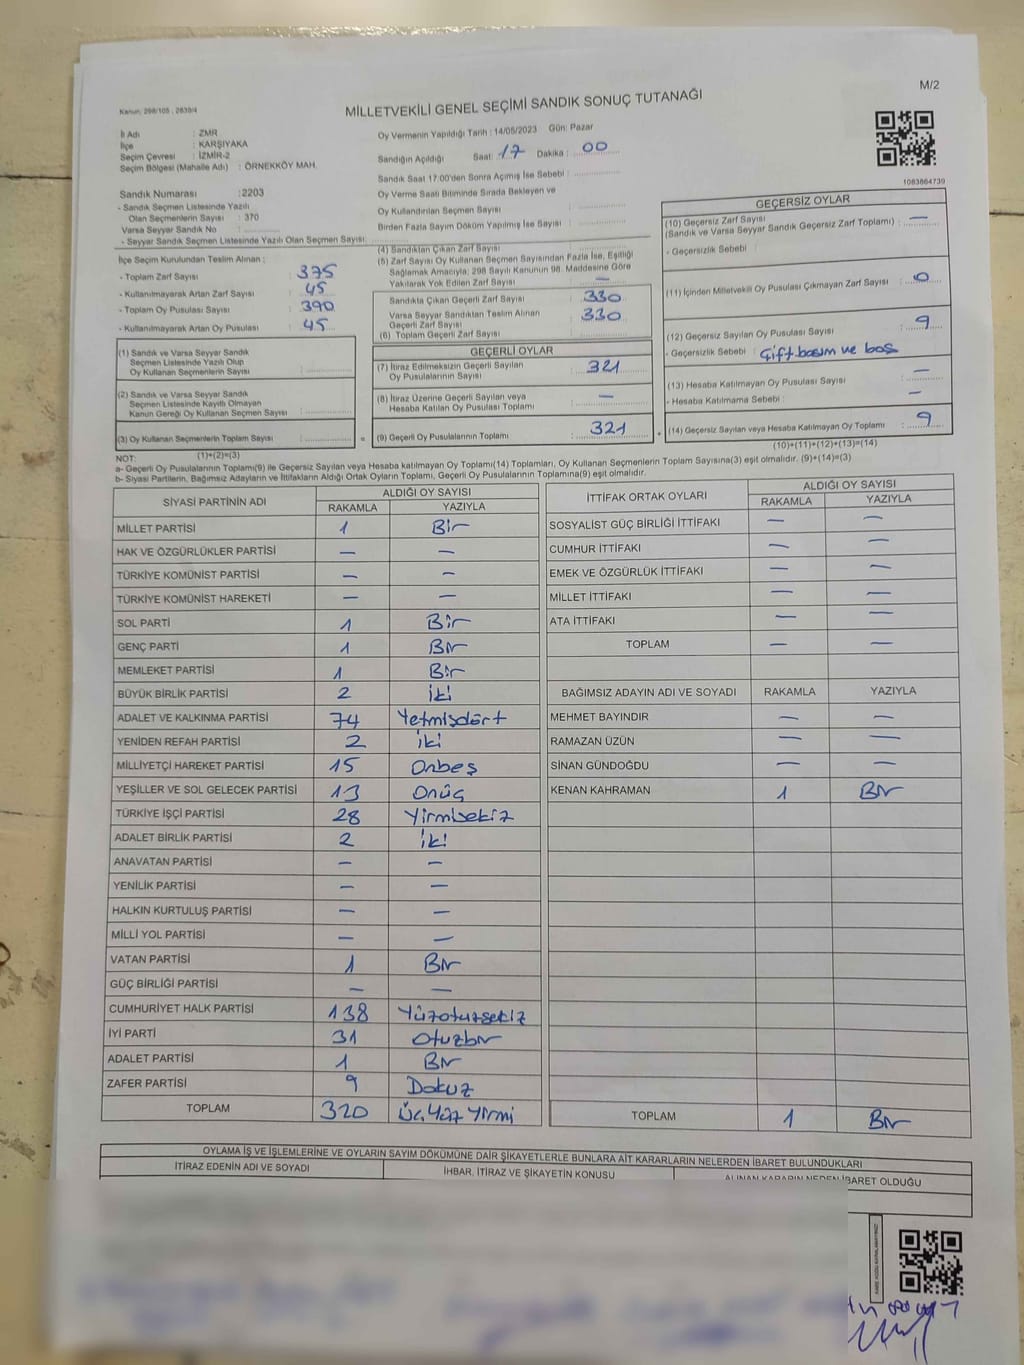 M/2
Kanun: 298/105 , 2839/4
MİLLETVEKİLİ GENEL SEÇİMİ SANDIK SONUÇ TUTANAĞI
İl Adı : ZMR
İlçe : KARŞIYAKA
Seçim Çevresi : İZMİR-2
Seçim Bölgesi (Mahalle Adı) : ÖRNEKKÖY MAH.
Oy Vermenin Yapıldığı Tarih : 14/05/2023 Gün: Pazar
Sandığın Açıldığı Saat: 17 Dakika : 00
Sandık Saat 17:00'den Sonra Açımış İse Sebebi :
Oy Verme Saati Bitiminde Sırada Bekleyen ve
Oy Kullandırılan Seçmen Sayısı :
Birden Fazla Sayım Döküm Yapılmış İse Sayısı :
1083864739
Sandık Numarası :2203
- Sandık Seçmen Listesinde Yazılı
Olan Seçmenlerin Sayısı : 370
Varsa Seyyar Sandık No :
- Seyyar Sandık Seçmen Listesinde Yazılı Olan Seçmen Sayısı:
İlçe Seçim Kurulundan Teslim Alınan :
- Toplam Zarf Sayısı : 375
- Kullanılmayarak Artan Zarf Sayısı : 45
- Toplam Oy Pusulası Sayısı : 390
- Kullanılmayarak Artan Oy Pusulası : 45
(4) Sandıktan Çıkan Zarf Sayısı :
(5) Zarf Sayısı Oy Kullanan Seçmen Sayısından Fazla İse, Eşitliği
Sağlamak Amacıyla; 298 Sayılı Kanunun 98. Maddesine Göre
Yakılarak Yok Edilen Zarf Sayısı : —
Sandıkta Çıkan Geçerli Zarf Sayısı : 330
Varsa Seyyar Sandıktan Teslim Alınan
Geçerli Zarf Sayısı : 330
(6) Toplam Geçerli Zarf Sayısı :
GEÇERLİ OYLAR
(7) İtiraz Edilmeksizin Geçerli Sayılan
Oy Pusulalarının Sayısı : 321
(8) İtiraz Üzerine Geçerli Sayılan veya
Hesaba Katılan Oy Pusulası Toplamı : —
(9) Geçerli Oy Pusulalarının Toplamı : 321
GEÇERSİZ OYLAR
(10) Geçersiz Zarf Sayısı
(Sandık ve Varsa Seyyar Sandık Geçersiz Zarf Toplamı) : —
- Geçersizlik Sebebi :
(11) İçinden Milletvekili Oy Pusulası Çıkmayan Zarf Sayısı : 0
(12) Geçersiz Sayılan Oy Pusulası Sayısı : 9
- Geçersizlik Sebebi : Çift basım ve boş
(13) Hesaba Katılmayan Oy Pusulası Sayısı : —
- Hesaba Katılmama Sebebi : —
(14) Geçersiz Sayılan veya Hesaba Katılmayan Oy Toplamı : 9
(10)+(11)+(12)+(13)=(14)
(1) Sandık ve Varsa Seyyar Sandık
Seçmen Listesinde Yazılı Olup
Oy Kullanan Seçmenlerin Sayısı :
(2) Sandık ve Varsa Seyyar Sandık
Seçmen Listesinde Kayıtlı Olmayan
Kanun Gereği Oy Kullanan Seçmen Sayısı :
(3) Oy Kullanan Seçmenlerin Toplam Sayısı :
(1)+(2)=(3)
NOT:
a- Geçerli Oy Pusulalarının Toplamı(9) ile Geçersiz Sayılan veya Hesaba katılmayan Oy Toplamı(14) Toplamları, Oy Kullanan Seçmenlerin Toplam Sayısına(3) eşit olmalıdır. (9)+(14)=(3)
b- Siyasi Partilerin, Bağımsız Adayların ve İttifakların Aldığı Ortak Oyların Toplamı, Geçerli Oy Pusulalarının Toplamına(9) eşit olmalıdır.
SİYASİ PARTİNİN ADI ALDIĞI OY SAYISI
RAKAMLA YAZIYLA
MİLLET PARTİSİ 1 Bir
HAK VE ÖZGÜRLÜKLER PARTİSİ — —
TÜRKİYE KOMÜNİST PARTİSİ — —
TÜRKİYE KOMÜNİST HAREKETİ — —
SOL PARTİ 1 Bir
GENÇ PARTİ 1 Bir
MEMLEKET PARTİSİ 1 Bir
BÜYÜK BİRLİK PARTİSİ 2 iki
ADALET VE KALKINMA PARTİSİ 74 Yetmişdört
YENİDEN REFAH PARTİSİ 2 iki
MİLLİYETÇİ HAREKET PARTİSİ 15 Onbeş
YEŞİLLER VE SOL GELECEK PARTİSİ 13 Onüç
TÜRKİYE İŞÇİ PARTİSİ 28 Yirmisekiz
ADALET BİRLİK PARTİSİ 2 iki
ANAVATAN PARTİSİ — —
YENİLİK PARTİSİ — —
HALKIN KURTULUŞ PARTİSİ — —
MİLLİ YOL PARTİSİ — —
VATAN PARTİSİ 1 Bir
GÜÇ BİRLİĞİ PARTİSİ — —
CUMHURİYET HALK PARTİSİ 138 Yüzotuzsekiz
İYİ PARTİ 31 Otuzbir
ADALET PARTİSİ 1 Bir
ZAFER PARTİSİ 9 Dokuz
TOPLAM 320 Üç Yüz Yirmi
İTTİFAK ORTAK OYLARI ALDIĞI OY SAYISI
RAKAMLA YAZIYLA
SOSYALİST GÜÇ BİRLİĞİ İTTİFAKI — —
CUMHUR İTTİFAKI — —
EMEK VE ÖZGÜRLÜK İTTİFAKI — —
MİLLET İTTİFAKI — —
ATA İTTİFAKI — —
TOPLAM — —
BAĞIMSIZ ADAYIN ADI VE SOYADI RAKAMLA YAZIYLA
MEHMET BAYINDIR — —
RAMAZAN ÜZÜN — —
SİNAN GÜNDOĞDU — —
KENAN KAHRAMAN 1 Bir
TOPLAM 1 Bir
OYLAMA İŞ VE İŞLEMLERİNE VE OYLARIN SAYIM DÖKÜMÜNE DAİR ŞİKAYETLERLE BUNLARA AİT KARARLARIN NELERDEN İBARET BULUNDUKLARI
İTİRAZ EDENİN ADI VE SOYADI İHBAR, İTİRAZ VE ŞİKAYETİN KONUSU ALINAN KARARIN NEDEN İBARET OLDUĞU